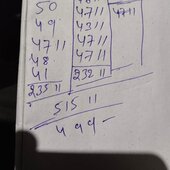 50
49
47 11
48
41
235 11
47 11
43 11
47 11
47 11
232 11
47 11
515 11
499-